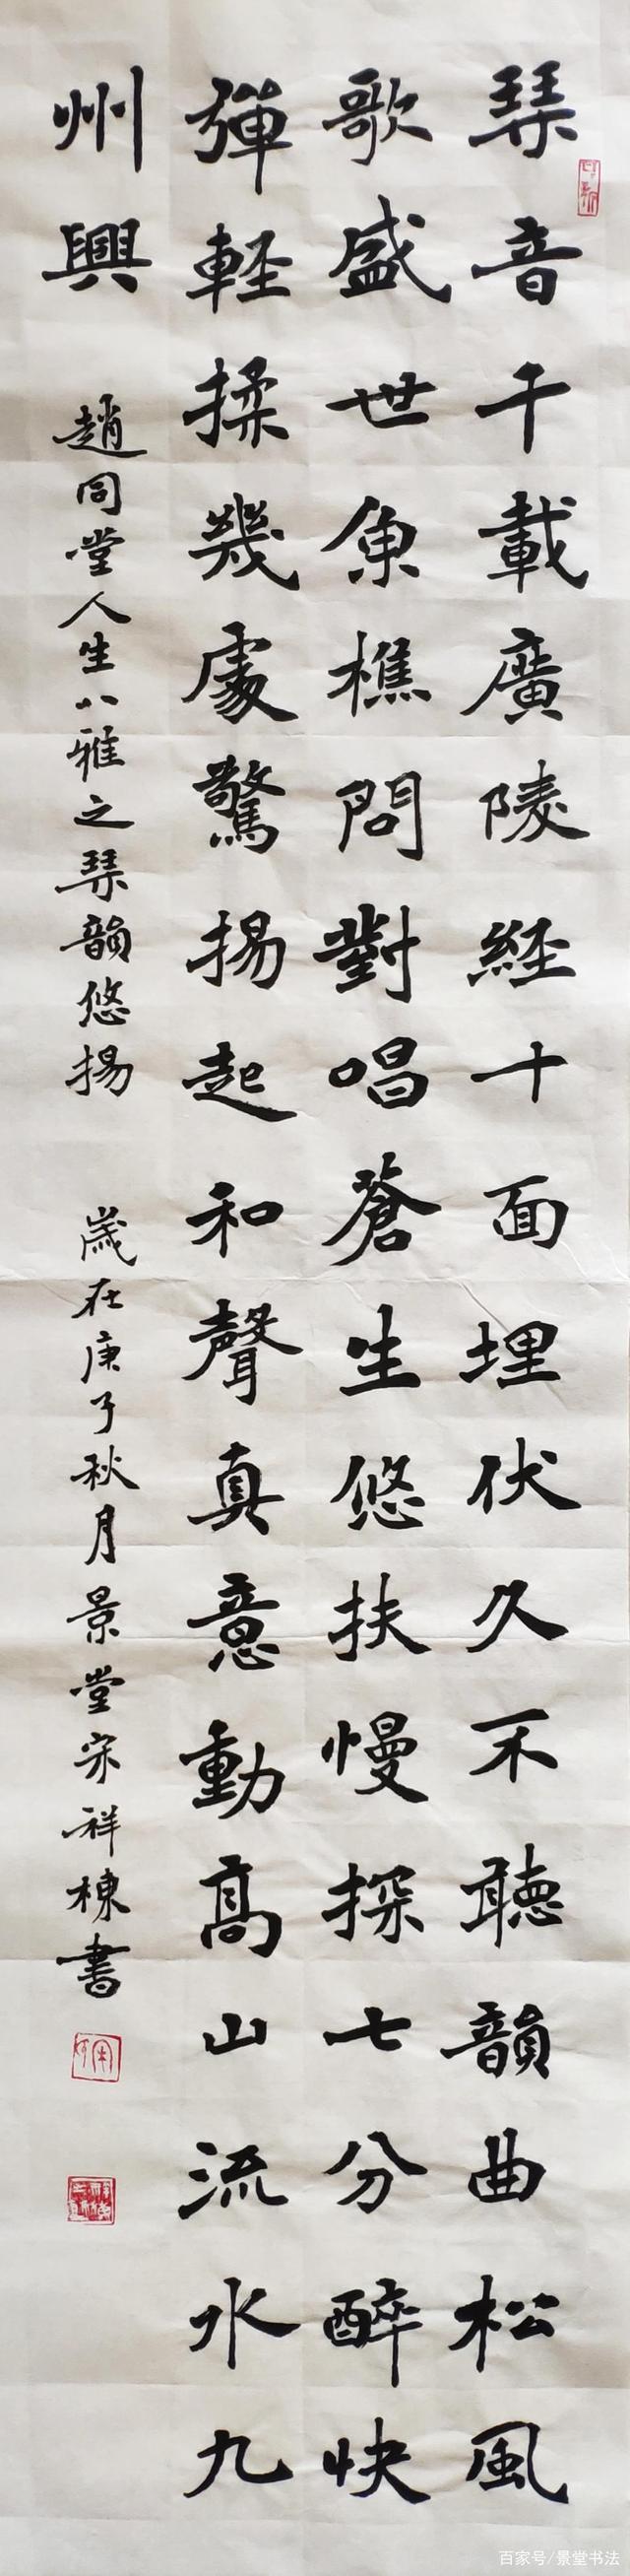 琹音千載廣陵経十面埋伏久不聽韻曲松風
歌盛世魚樵問對唱蒼生悠扶慢探七分醉快
彈軽揉幾處驚揚起和聲真意動高山流水九
州興
趙同堂人生八雅之琹韻悠揚
歲在庚子秋月景堂宋祥棟書
百家号/景堂书法